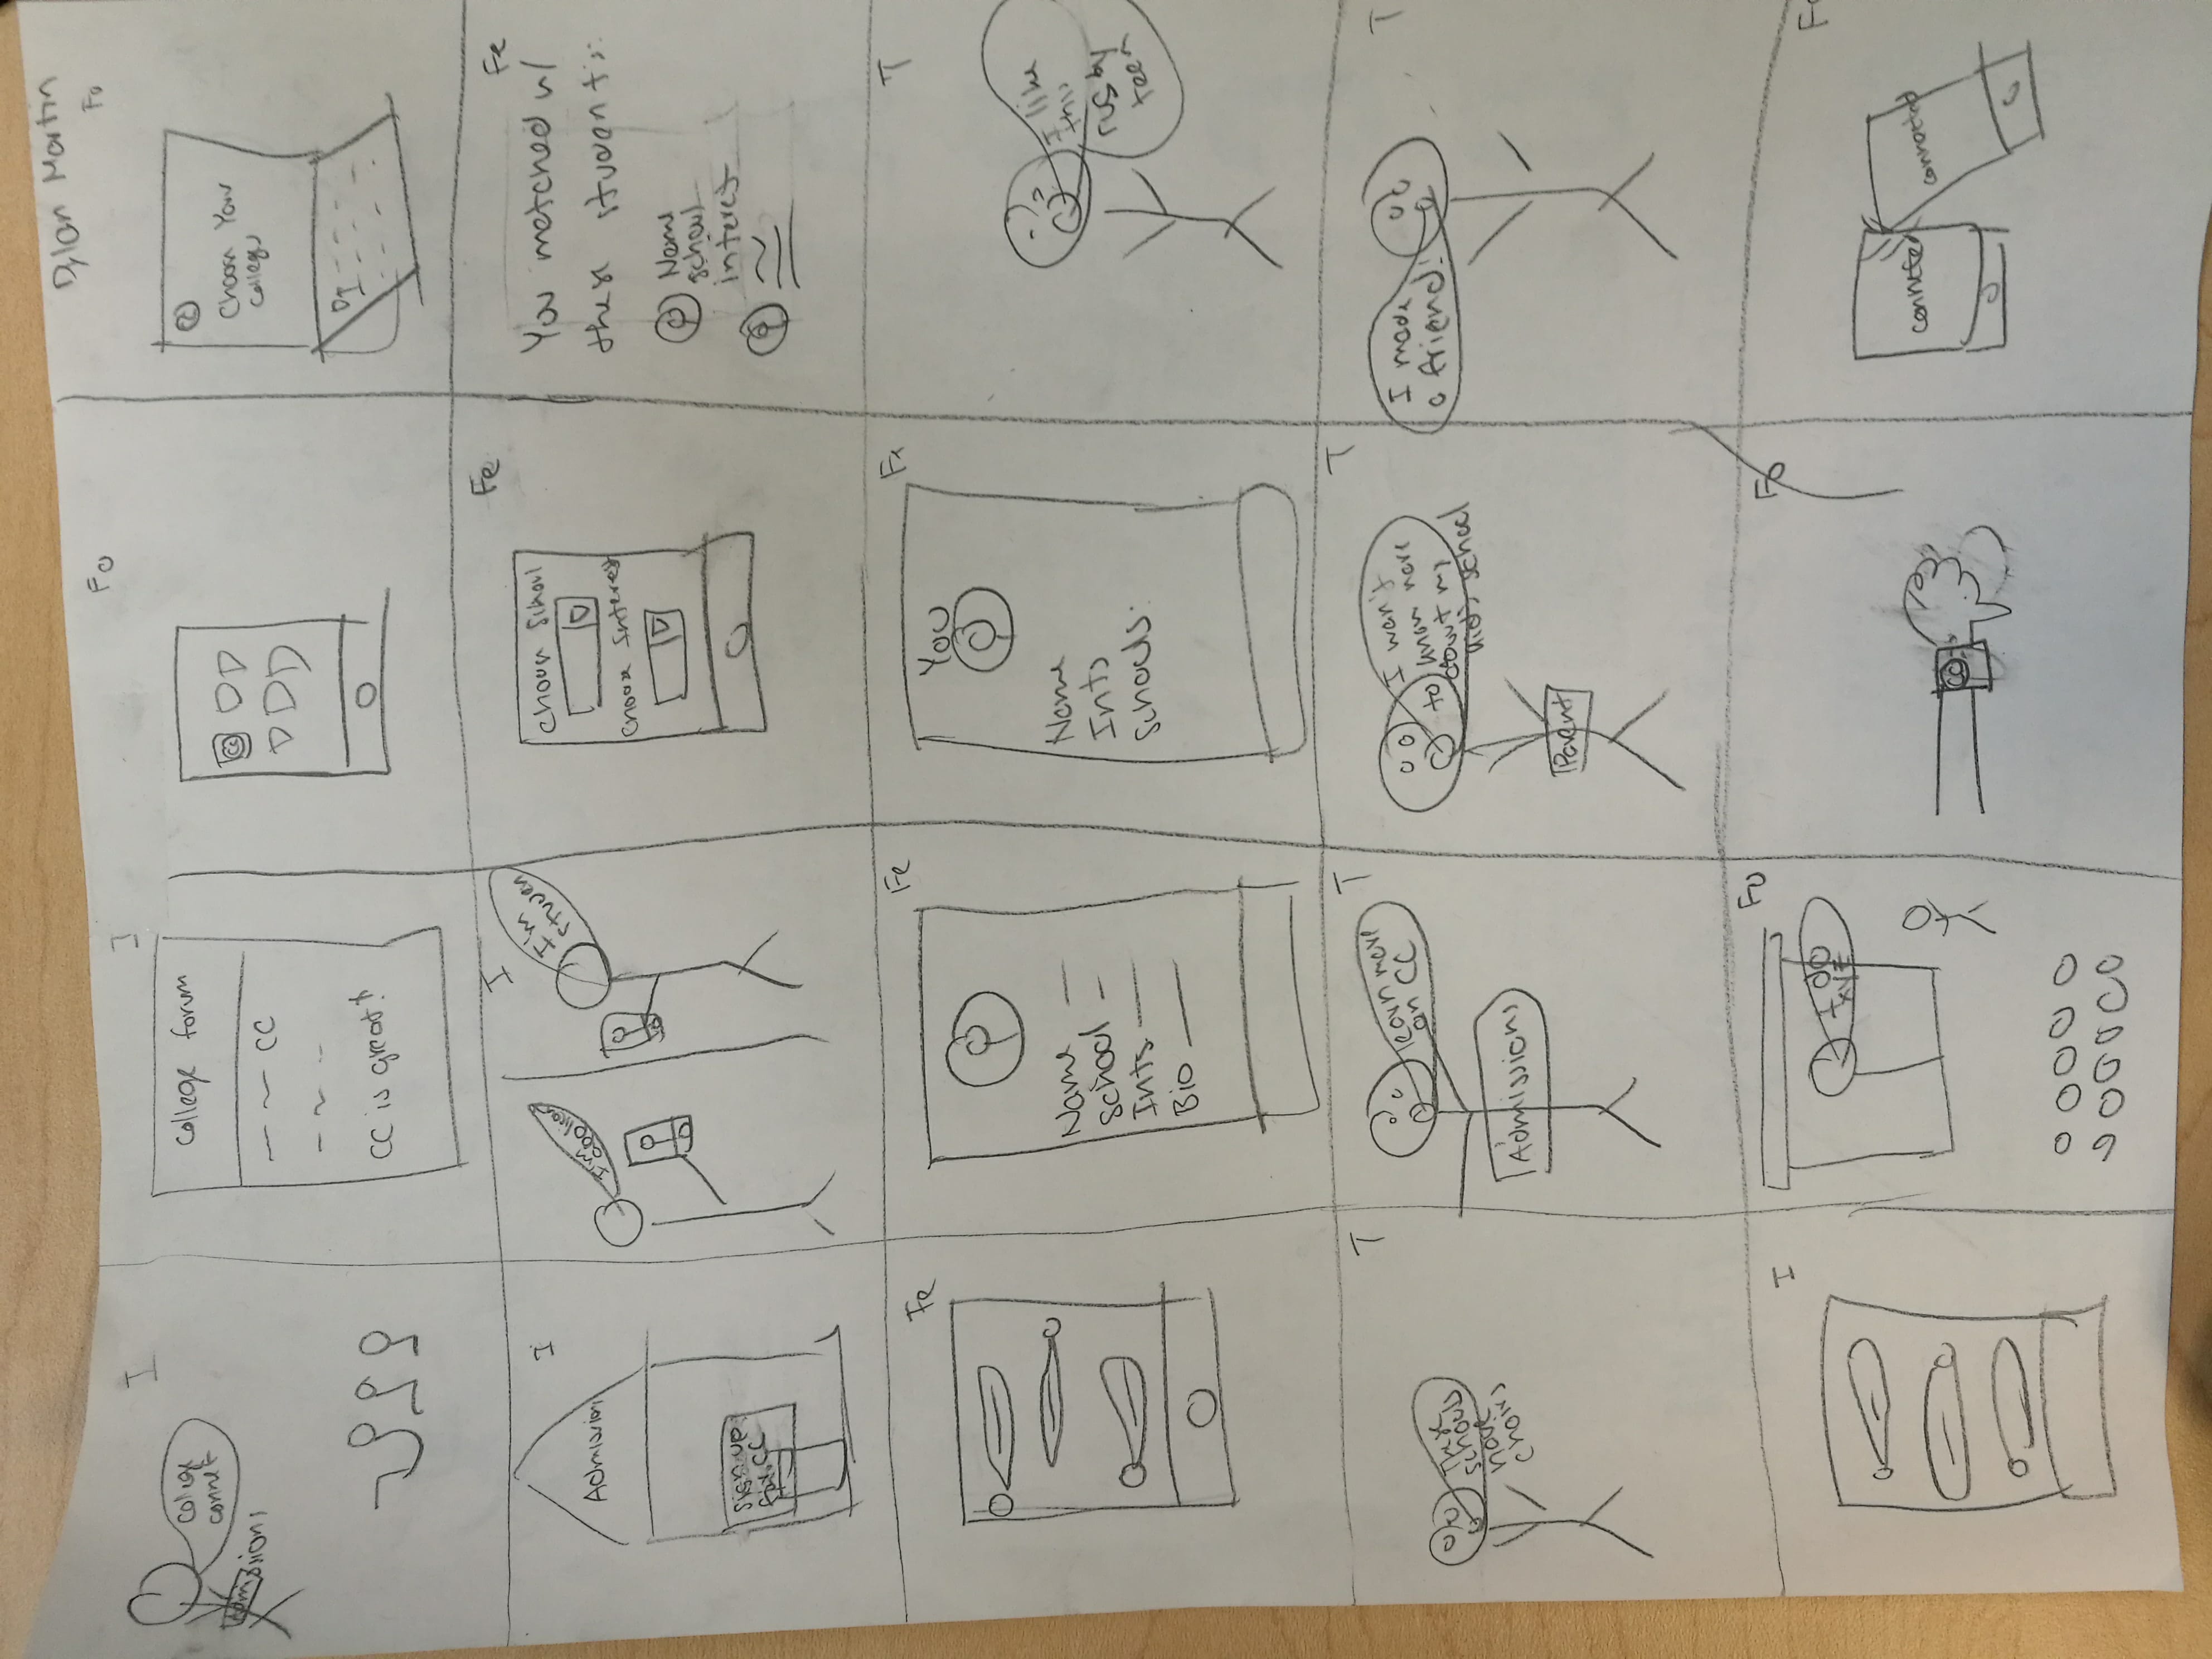 Dylan Martin
I
College
connet
Admissions
I
College forum
CC
CC is great!
Fo
CC
Fo
CC
Choose Your
College
I
Admissions
Sign up
for CC
I
I'm
applicant
I'm
studen
Fe
Choose School
Choose Interest
Fe
You matched w/
these students:
Name
school
interest
Fe
Fe
Name
School
Ints
Bio
Fe
You
Name
Ints
Schools:
T
I like
this
rugby
team
T
These
schools
have
choirs
T
learn more
on CC
Admissions
T
I want
to know more
about my
kid's school
Parent
T
I made
a friend!
I
Fo
I do
XYZ
Fo
CC
Fo
connected
connected